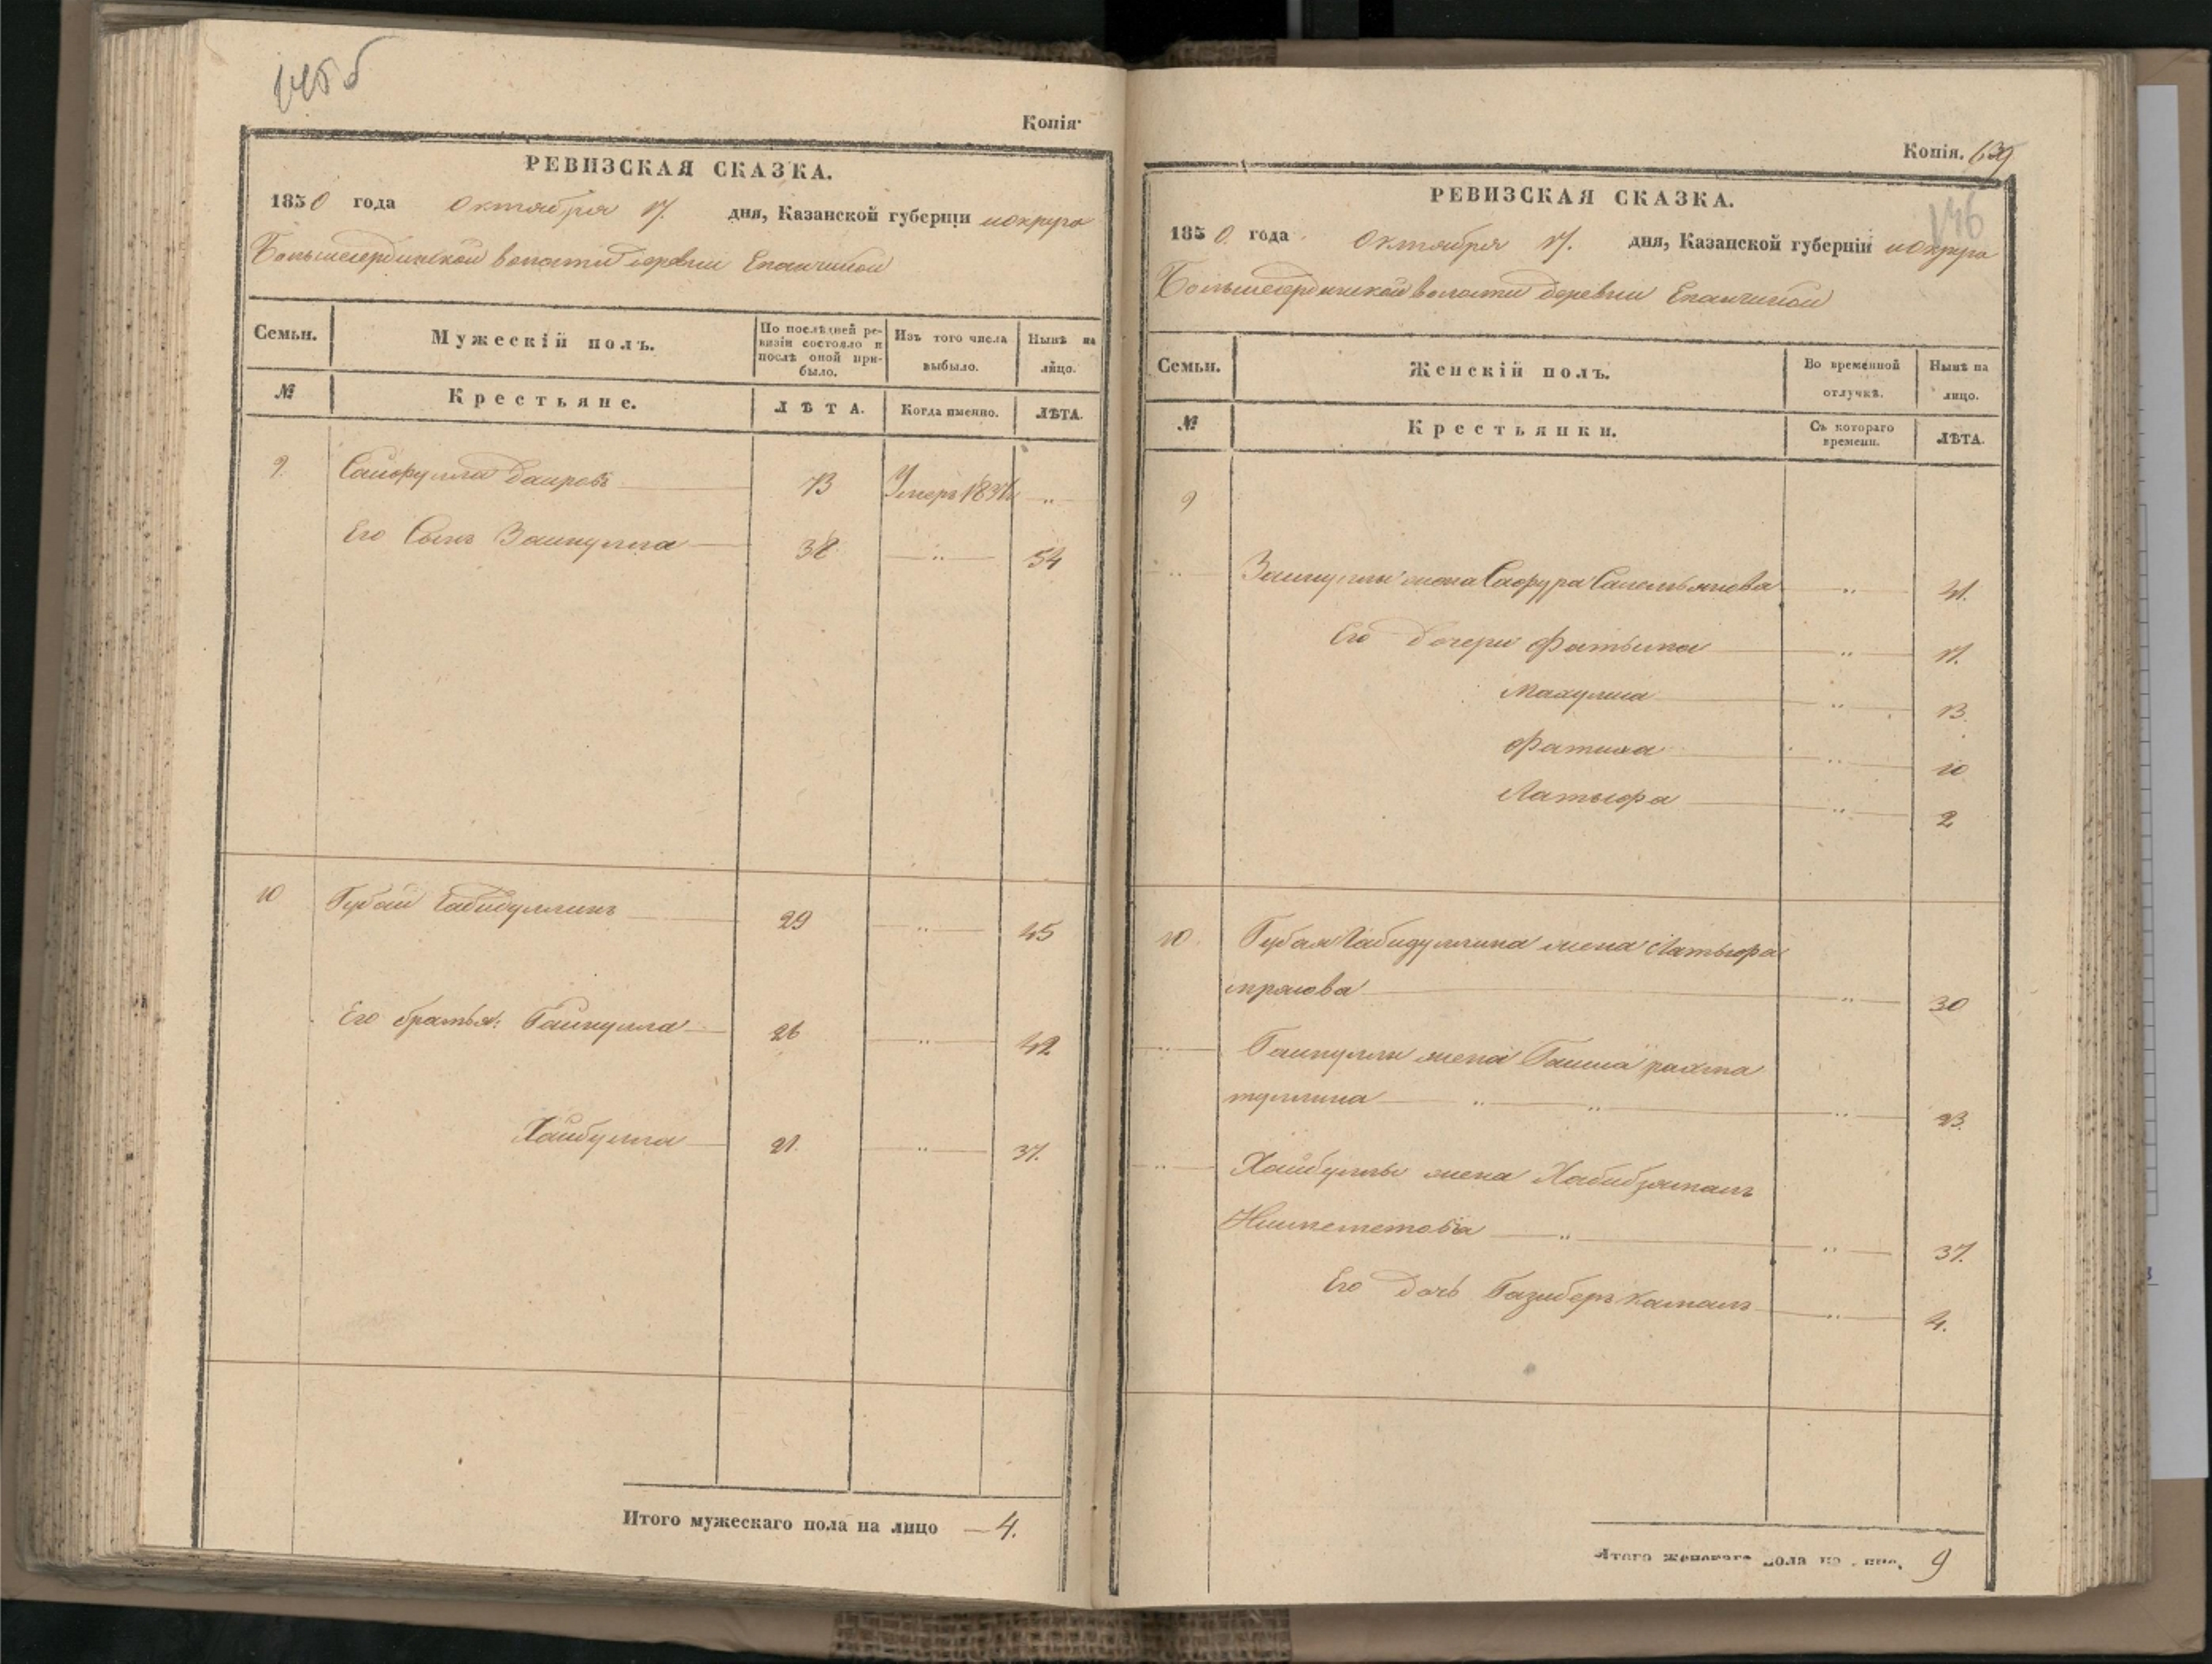 145 б
Копія
РЕВИЗСКАЯ СКАЗКА.
1850 года октября 17. дня, Казанской губерніи и округа
Большесердинской волости деревни Епанчиной
Семьи. Мужескій полъ. По послѣдней ревизіи состояло и послѣ оной прибыло. Изъ того числа выбыло. Нынѣ на лицо.
№ Крестьяне. ЛѢТА. Когда именно. ЛѢТА.
9. Сайфулла Даировъ 73 Умеръ 183 "
Его Сынъ Зайнулла 38 " 54
10 Губай Габидуллинъ 29 " 45
Его братья: Гайнулла 26 " 42
Хайбулла 21. " 37.
Итого мужескаго пола на лицо 4.
Копія. 639
146
РЕВИЗСКАЯ СКАЗКА.
1850. года октября 17. дня, Казанской губерніи и округа
Большесердинской волости деревни Епанчиной
Семьи. Женскій полъ. Во временной отлучкѣ. Нынѣ на лицо.
№ Крестьянки. Съ котораго времени. ЛѢТА.
9
" Зайнуллы жена Сафура " 41.
Его дочери Фатыма " 17.
" 13.
Фатиха " 10
Латыфа " 2
10. Губая Габидуллина жена Латыфа
" 30
" Гайнуллы жена рахма
туллина " " " 23.
" Хайбуллы жена Хабибзямалъ
Ишмететова " " 37.
Его дочь камалъ " 4.
Итого женскаго пола на лицо, 9